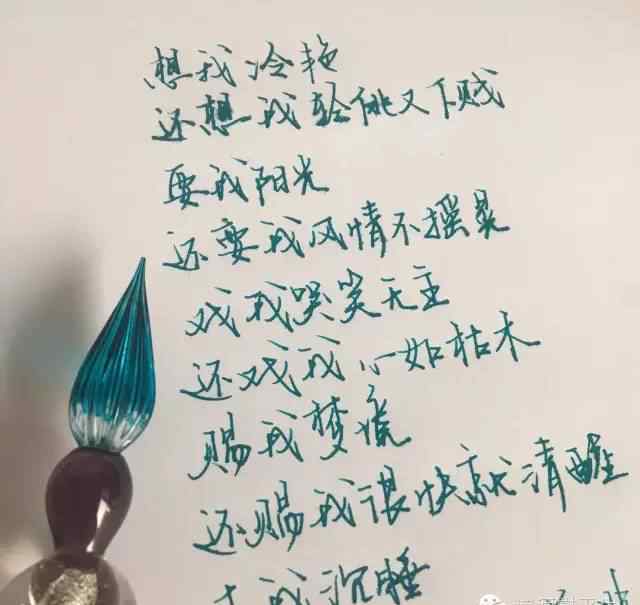 想我冷艳
还想我轻佻又下贱
要我阳光
还要我风情不摇晃
戏我哭笑无主
还戏我心如枯木
赐我梦境
还赐我很快就清醒
我沉睡